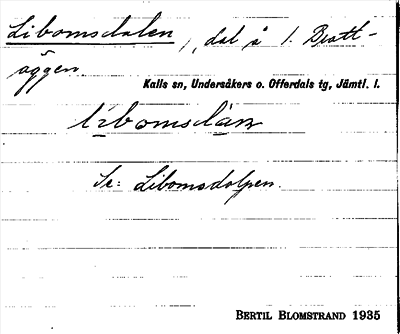 Libomsdalen, dal å l. Bratt-
äggen
Kalls sn, Undersåkers o. Offerdals tg, Jämtl. l.
libomsdan
Se: Libomsdolpen.
BERTIL BLOMSTRAND 1935